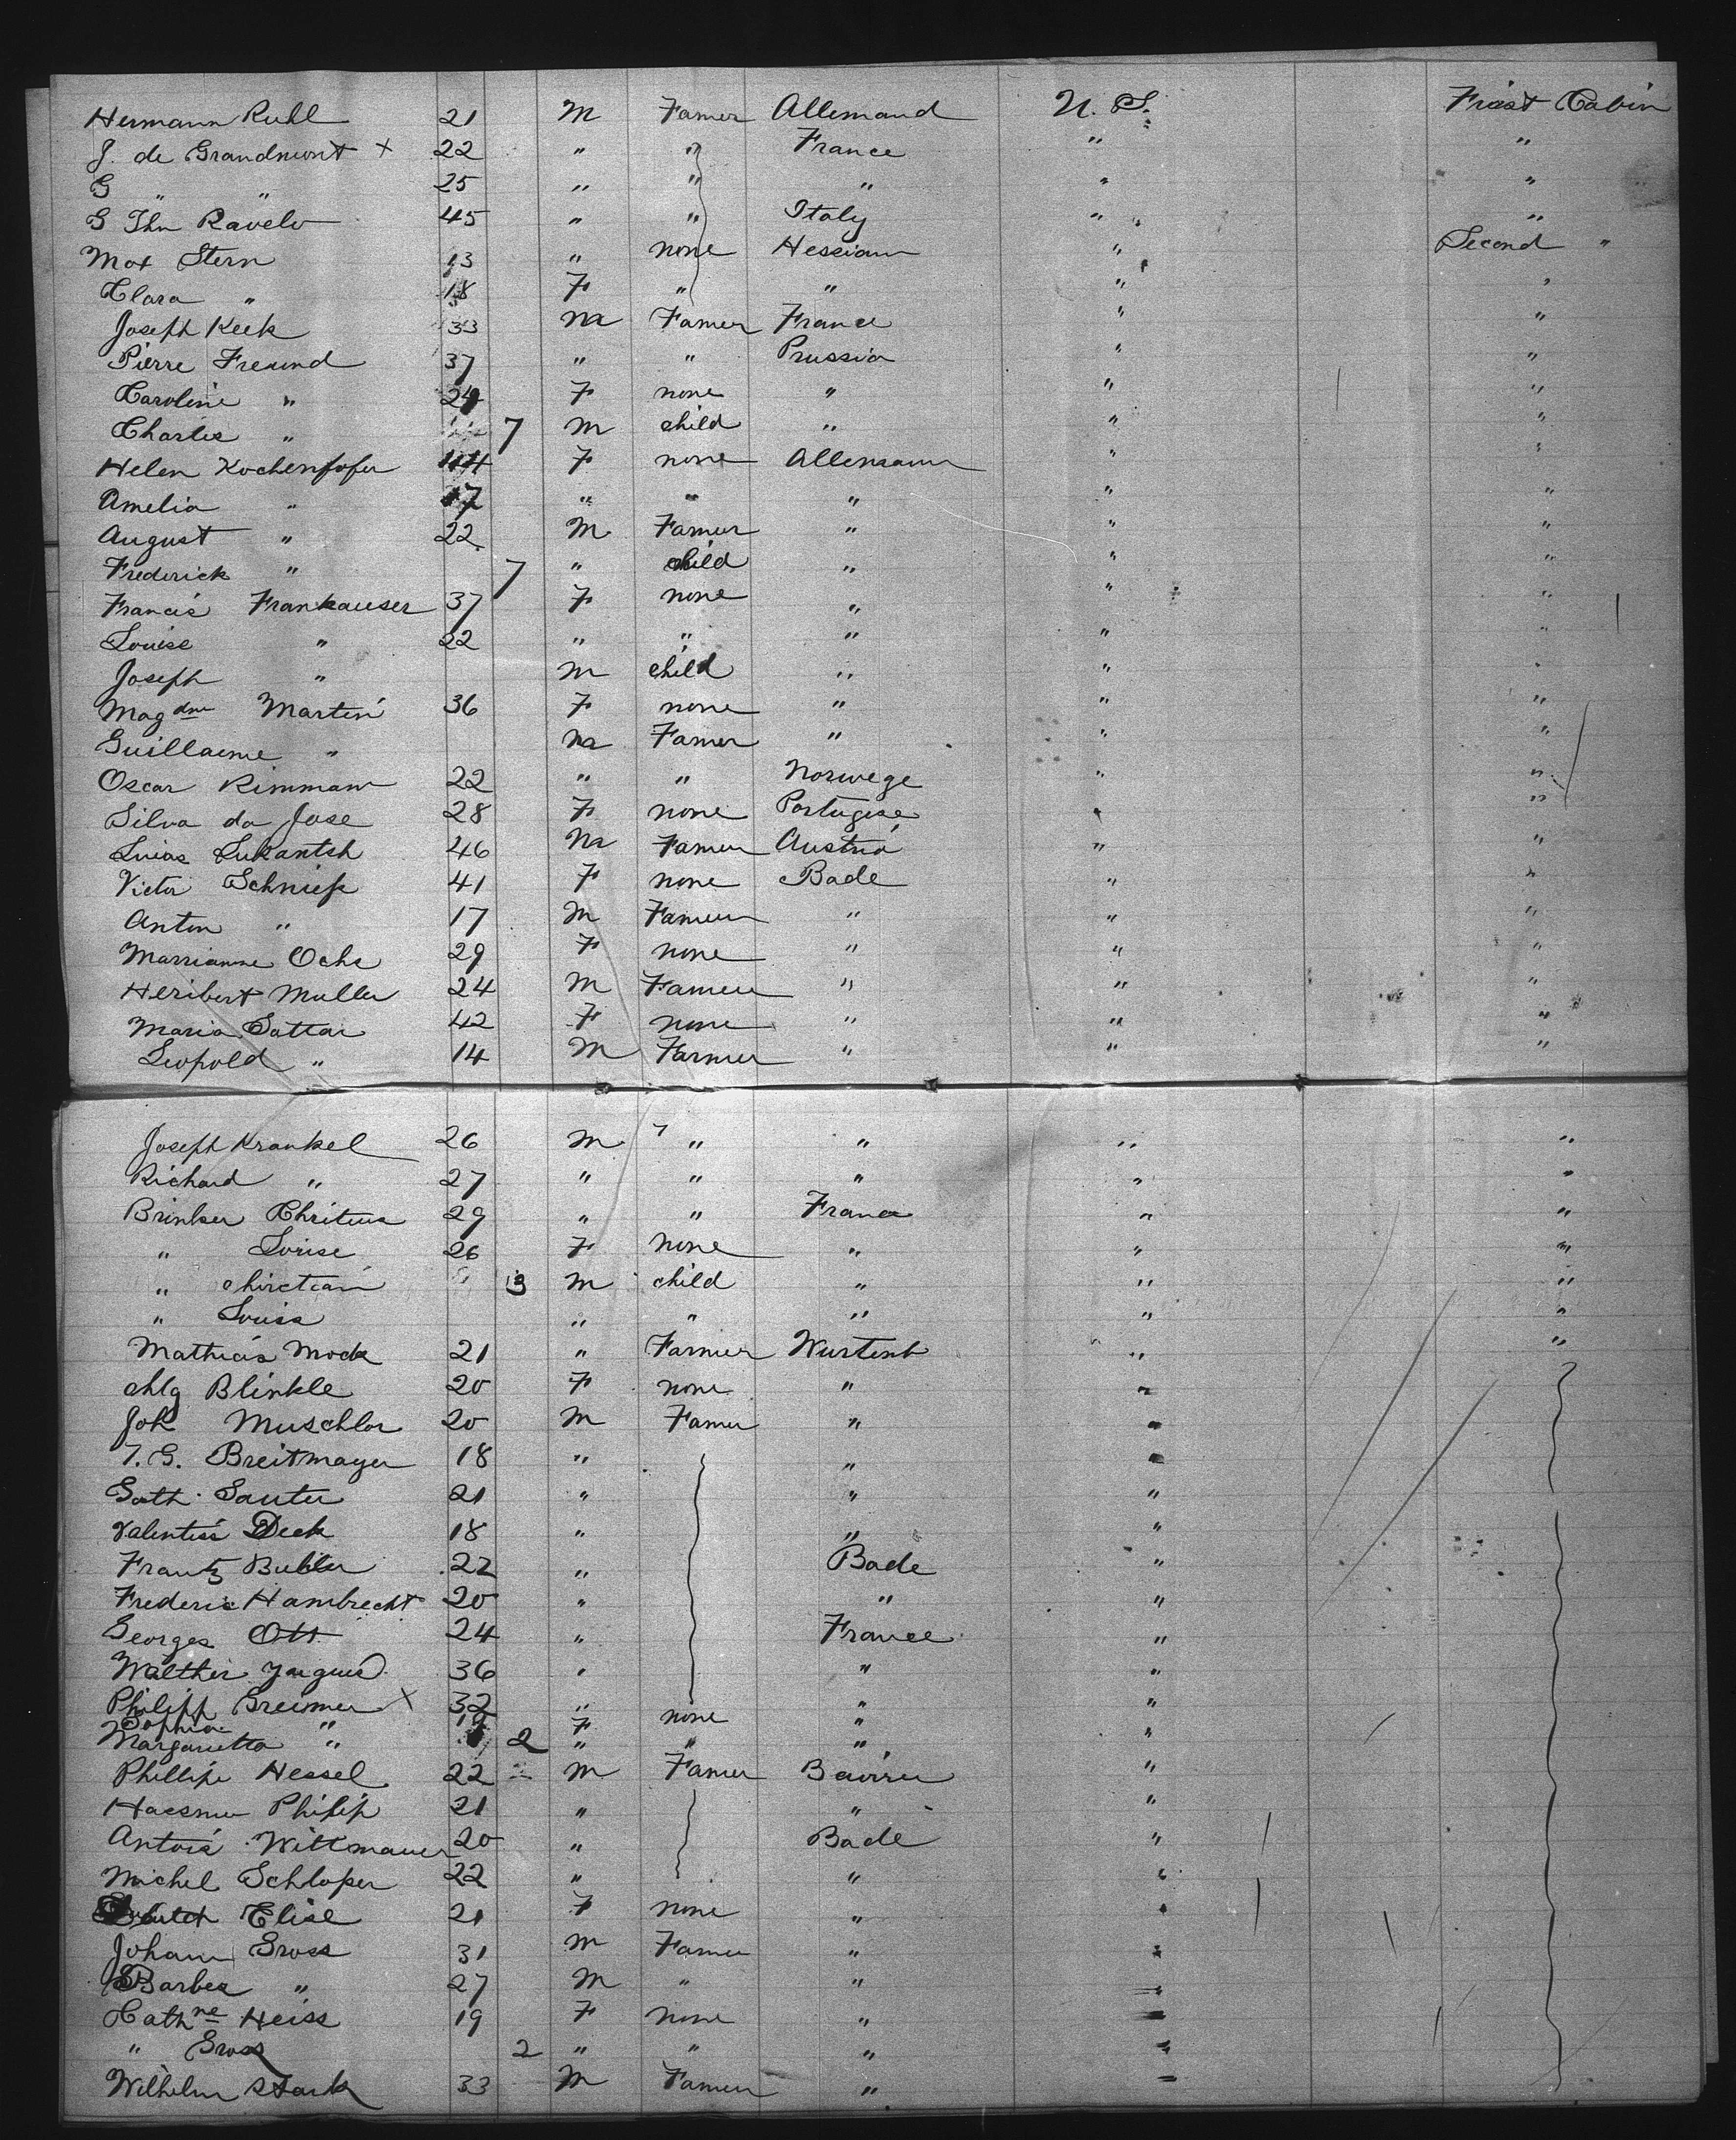 Hermann Ruhl 21 M Famer Allemand U. S. First Cabin
J. de Grandmont x 22 " " France " "
G " " 25 " " " " "
G Ravelo 45 " " Italy " "
Max Stern 13 " none Hessian " Second "
Clara " 18 F " " " "
Joseph Keek 33 M Famer France " "
Pierre Freund 37 " " Prussia " "
Caroline " 24 F none " " "
Charles " 7 M child " " "
Helen Kochenhofer 44 F none Allemann " "
Amelia " 17 " " " " "
August " 22 M Famer " " "
Frederick " 7 " child " " "
Francis Frankauser 37 F none " " "
Louise " 22 " " " " "
Joseph " M child " " "
Mag dne Martin 36 F none " " "
Guillaume " M Famer " " "
Oscar Rimmann 22 " " Norwege " "
Silva da Jose 28 F none Portugese " "
Lukantsh 46 M Famer Austria " "
Victor Schniess 41 F none Bade " "
Anton " 17 M Famer " " "
Marrianne Ochs 29 F none " " "
Heribert Muller 24 M Famer " " "
Maria Sattai 42 F none " " "
Leopold " 14 M Farmer " " "
Joseph Krankel 26 M " " " "
Richard " 27 " " " " "
Brinker 29 " " France " "
" Louise 26 F none " " "
" Chirctian 3 M child " " "
" Louisa " " " " "
Mathias Mock 21 " Farmer Wurtemb " "
Mlg Blinkle 20 F none " "
Joh Muschlor 20 M Famer " "
T. G. Breitmayer 18 " " "
Goth. Sauter 21 " " "
Valentin Deck 18 " " "
Frantz Buhler 22 " Bade "
Frederic Hambrecht 20 " " "
Georges Ott 24 " France "
Walther Jaques 36 " " "
Philipp Greimer x 32 " " "
Sophia " 19 F none "
Margarietta " 2 " " " "
Phillipe Hessel 22 M Famer Baviru "
Haesmer Philip 21 " " "
Antoia Wittmauer 20 " Bade "
Michel Schloper 22 " " "
Elise 21 F none " "
Johann Gross 31 M Famer " "
Barbea " 27 M " " "
Cathne Heiss 19 F none " "
" Gross 2 " " " "
Wilhelm Stark 33 M Famer " "